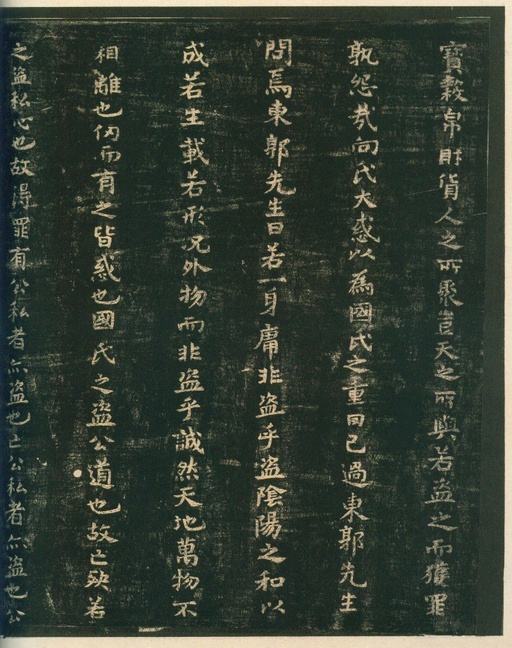 寶穀帛財貨人之所聚豈天之所與若盜之而獲罪
孰怨哉向氏大惑以為國氏之重囘已過東郭先生
問焉東郭先生曰若一身庸非盜乎盜陰陽之和以
成若生載若形况外物而非盜乎誠然天地萬物不
相離也仞而有之皆惑也國氏之盜公道也故亡殃若
之盜私心也故得罪有公私者亦盜也亡公私者亦盜也公